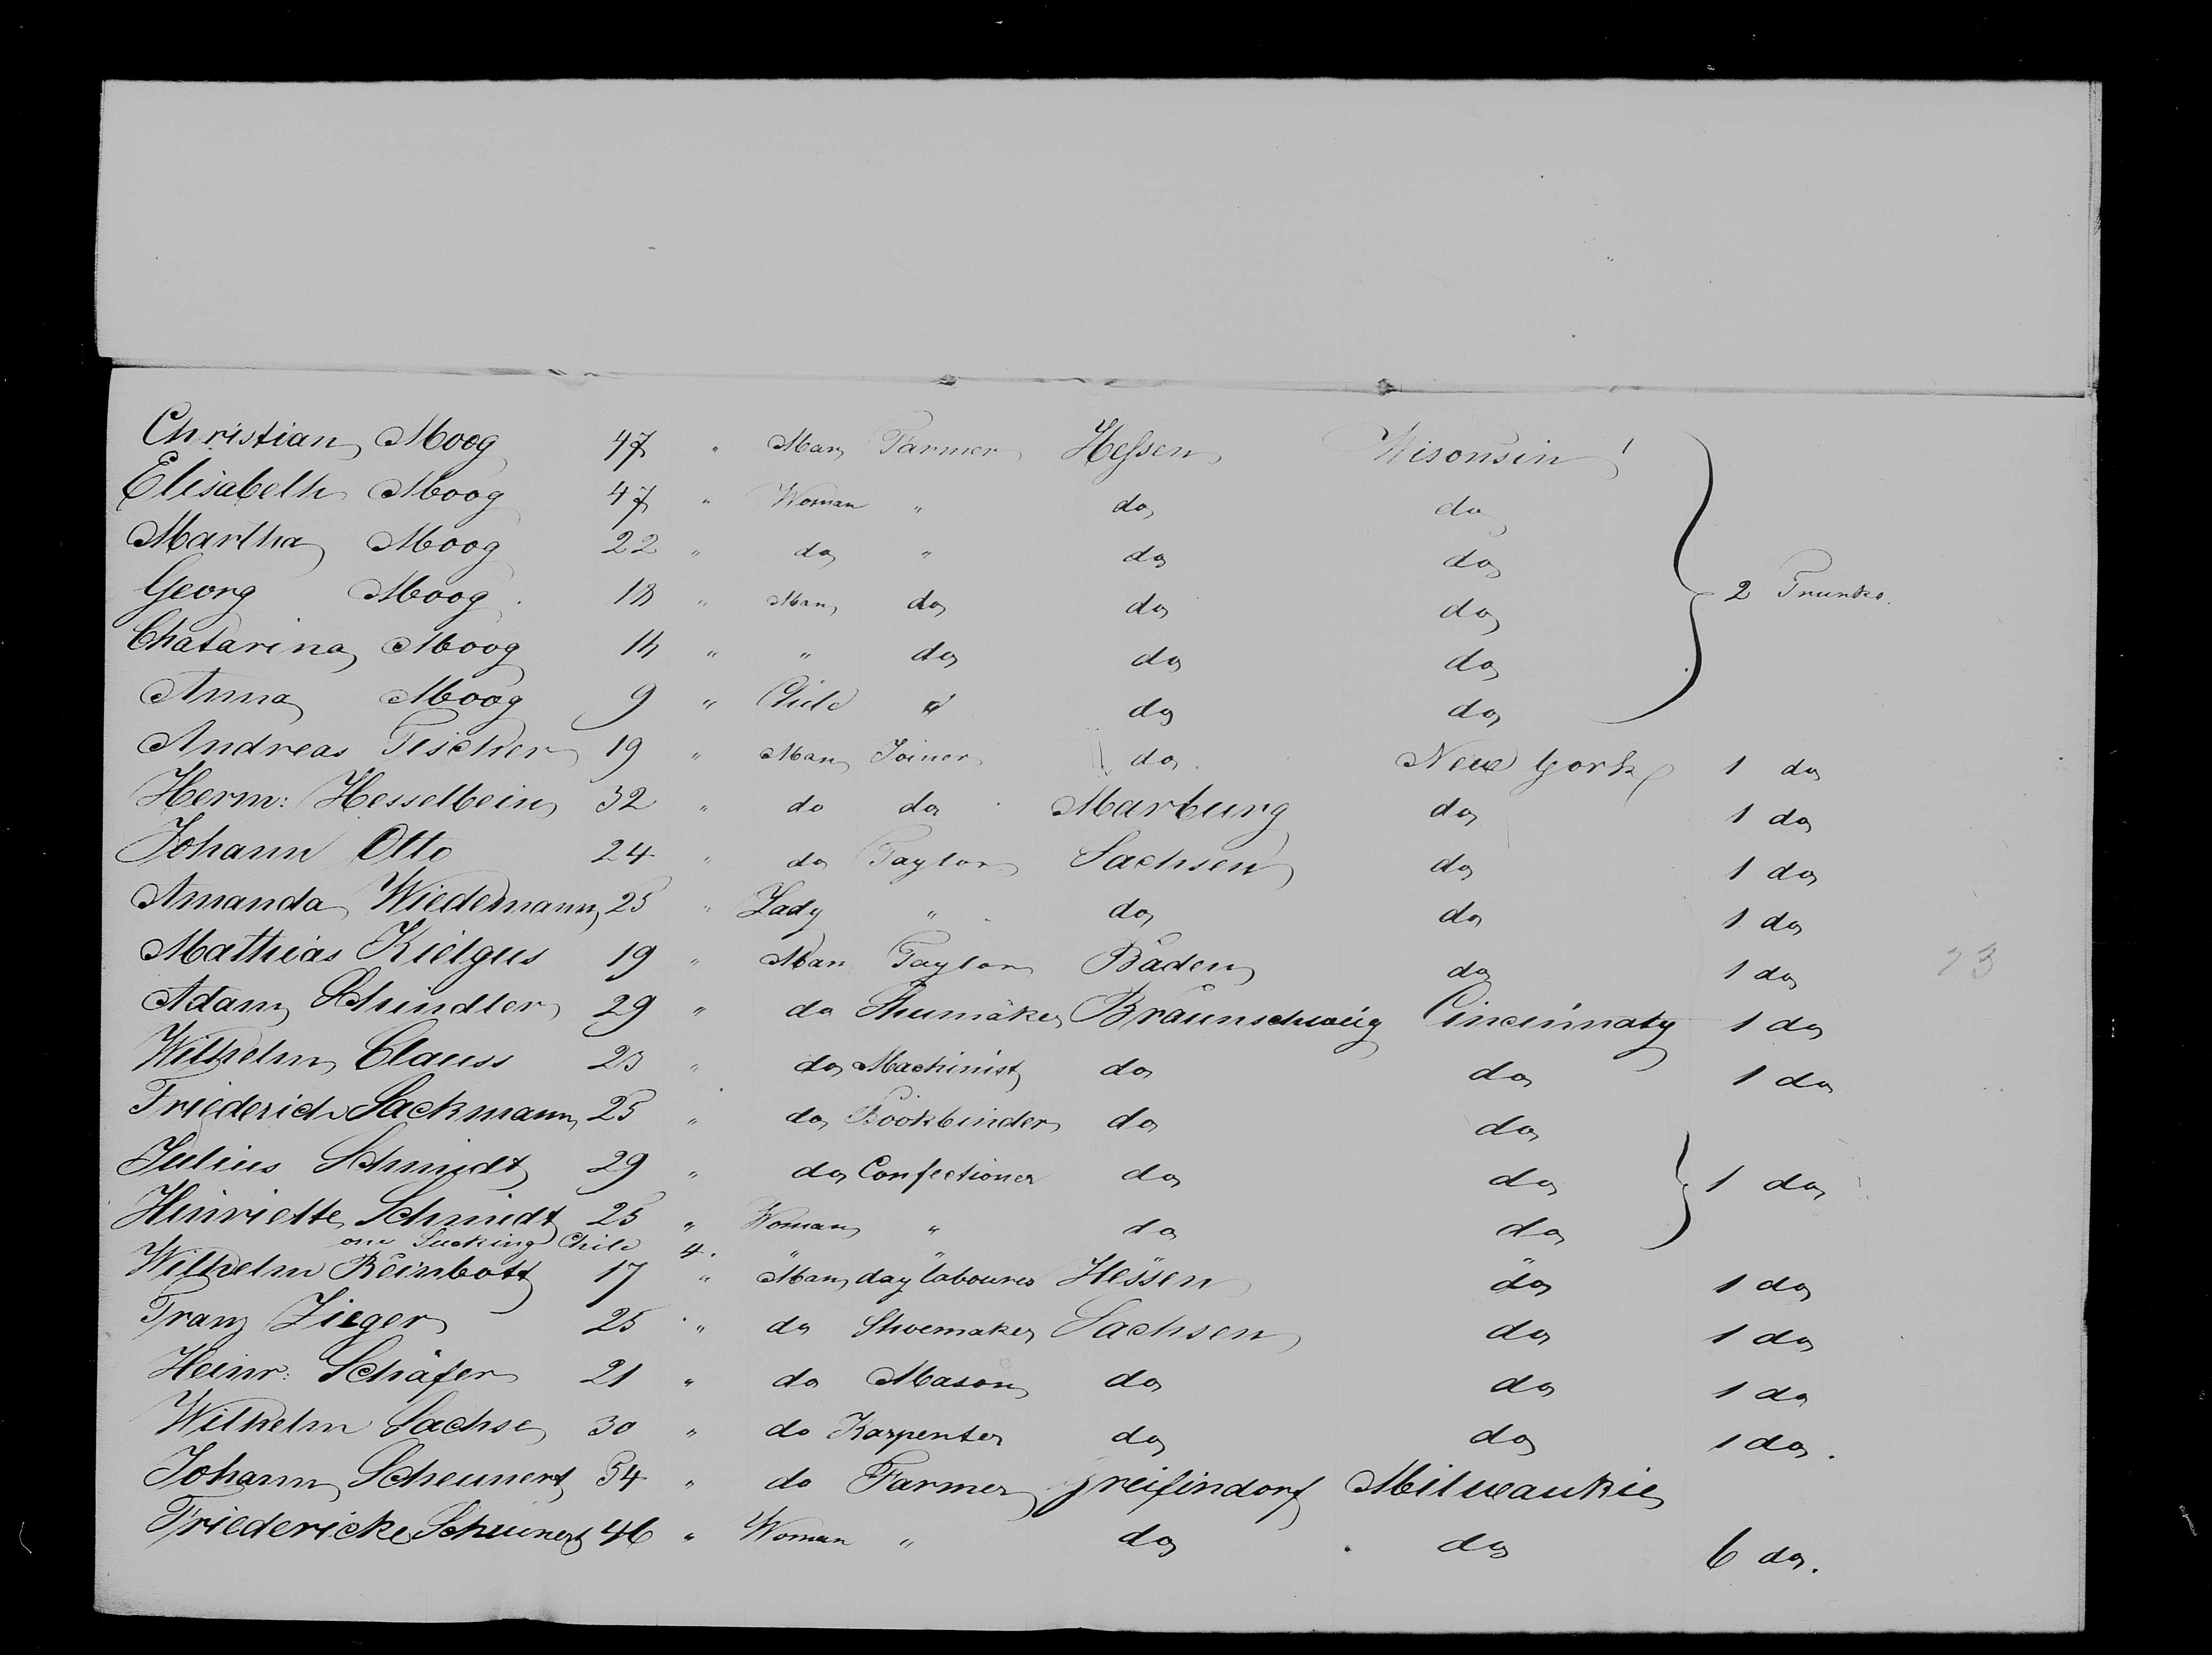 Christian Moog 47 " Man Farmer Hessen Wisonsin
Elisabeth Moog 47 " Woman " do do
Martha Moog 22 " do " do do
Georg Moog 18 " Man do do do 2 Trunks.
Chatarina Moog 14 " " do do do
Anna Moog 9 " Child do do
Andreas Fischer 19 " Man Joiner do. New York 1 do
Herm: Hesselbein 32 " do do Marburg do 1 do
Johann Otto 24 " do Taylor Sachsen do 1 do
Amanda Wiedemann 25 " Lady " do do 1 do
Mathias Kielgus 19 " Man Taylor Baden do 1 do 23
Adam Schindler 29 " do Shumaker Braunschweig Cincinnaty 1 do
Wilhelm Clauss 23 " do Machinist do do 1 do
Friederich Sackmann 25 " do Bookbinder do do
Julius Schmidt 29 " do Confectioner do do 1 do
Hinriette Schmidt 25 " Woman " do do
one Sucking Child 4. " " " "
Wilhelm Reimbott 17 " Man day labourer Hessen do 1 do
Franz Zieger 25 " do Shoemaker Sachsen do 1 do
Heinr: Schäfer 21 " do Mason do do 1 do
Wilhelm Sachse 30 " do Karpenter do do 1 do.
Johann Scheunert 54 " do Farmer Greifindorf Milwaukie
Friedericke Scheunert 46 " Woman " do do 6 do.